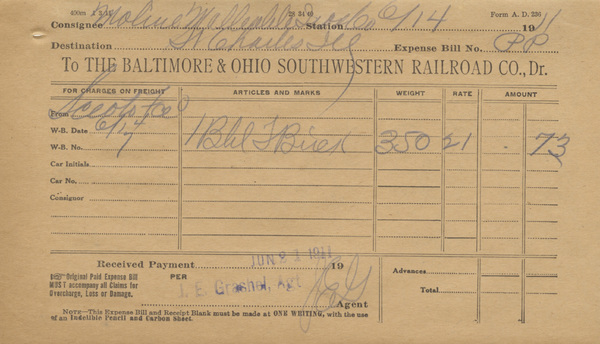 400m 1 8 10 28 34 49 Form A. D. 236
Consignee Moline Malleable Iron Co Station 6/14 1911
Destination St Charles Ill Expense Bill No. PP
To THE BALTIMORE & OHIO SOUTHWESTERN RAILROAD CO., Dr.
FOR CHARGES ON FREIGHT ARTICLES AND MARKS WEIGHT RATE AMOUNT
From
W-B. Date 6/17
W-B. No. 7 1 Bbl F Brick 350 21 . 73
Car Initials
Car No.
Consignor
Received Payment JUN 1911 19
Original Paid Expense Bill PER Advances
MUST accompany all Claims for J. E. Agt
Overcharge, Loss or Damage. Total
Agent
NOTE—This Expense Bill and Receipt Blank must be made at ONE WRITING, with the use
of an Indelible Pencil and Carbon Sheet.